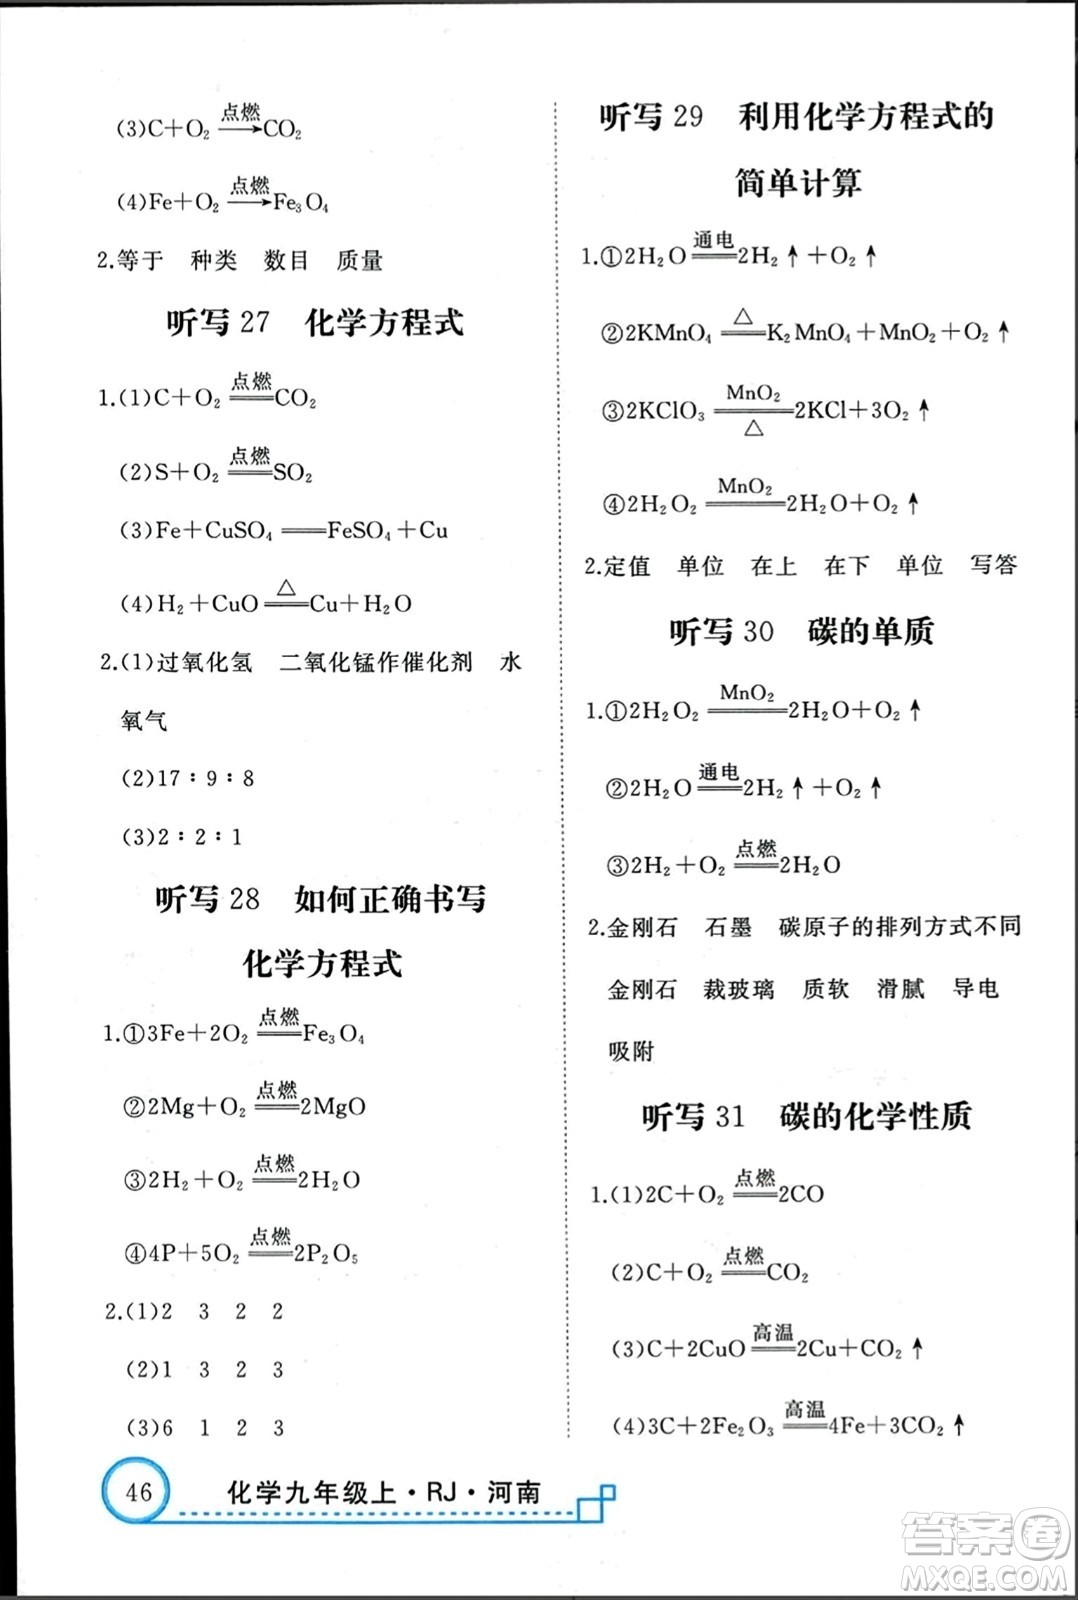 (3)C+O₂ —点燃→ CO₂
(4)Fe+O₂ —点燃→ Fe₃O₄
2.等于 种类 数目 质量
听写 27 化学方程式
1.(1)C+O₂ ═点燃═ CO₂
(2)S+O₂ ═点燃═ SO₂
(3)Fe+CuSO₄ ═══ FeSO₄+Cu
(4)H₂+CuO ═△═ Cu+H₂O
2.(1)过氧化氢 二氧化锰作催化剂 水
氧气
(2)17∶9∶8
(3)2∶2∶1
听写 28 如何正确书写
化学方程式
1.①3Fe+2O₂ ═点燃═ Fe₃O₄
②2Mg+O₂ ═点燃═ 2MgO
③2H₂+O₂ ═点燃═ 2H₂O
④4P+5O₂ ═点燃═ 2P₂O₅
2.(1)2 3 2 2
(2)1 3 2 3
(3)6 1 2 3
听写 29 利用化学方程式的
简单计算
1.①2H₂O ═通电═ 2H₂↑+O₂↑
②2KMnO₄ ═△═ K₂MnO₄+MnO₂+O₂↑
③2KClO₃ ═MnO₂/△═ 2KCl+3O₂↑
④2H₂O₂ ═MnO₂═ 2H₂O+O₂↑
2.定值 单位 在上 在下 单位 写答
听写 30 碳的单质
1.①2H₂O₂ ═MnO₂═ 2H₂O+O₂↑
②2H₂O ═通电═ 2H₂↑+O₂↑
③2H₂+O₂ ═点燃═ 2H₂O
2.金刚石 石墨 碳原子的排列方式不同
金刚石 裁玻璃 质软 滑腻 导电
吸附
听写 31 碳的化学性质
1.(1)2C+O₂ ═点燃═ 2CO
(2)C+O₂ ═点燃═ CO₂
(3)C+2CuO ═高温═ 2Cu+CO₂↑
(4)3C+2Fe₂O₃ ═高温═ 4Fe+3CO₂↑
46 化学九年级上·RJ·河南
答案圈
MXQE.COM